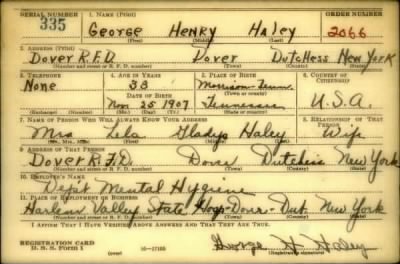 SERIAL NUMBER 1. NAME (Print) ORDER NUMBER
335 George Henry Haley 2066
(First) (Middle) (Last)
2. ADDRESS (Print)
Dover R.F.D. Dover Dutchess New York
(Number and street or R. F. D. number) (Town) (County) (State)
3. TELEPHONE 4. AGE IN YEARS 5. PLACE OF BIRTH 6. COUNTRY OF CITIZENSHIP
None 33 Morrison Tenn.
DATE OF BIRTH
Nov 25 1907 Tennessee U.S.A.
7. NAME OF PERSON WHO WILL ALWAYS KNOW YOUR ADDRESS 8. RELATIONSHIP OF THAT PERSON
Mrs Lela Gladys Haley Wife
9. ADDRESS OF THAT PERSON
Dover R.F.D. Dover Dutchess New York
(Number and street or R. F. D. number) (Town) (County) (State)
10. EMPLOYER'S NAME
Dept Mental Hygiene
11. PLACE OF EMPLOYMENT OR BUSINESS
Harlem Valley State Hosp. Dover Dut New York
(Number and street or R. F. D. number) (Town) (County) (State)
I AFFIRM THAT I HAVE VERIFIED ABOVE ANSWERS AND THAT THEY ARE TRUE.
REGISTRATION CARD
D. S. S. FORM 1 (over) 16-17105 George H Haley
(Registrant's signature)